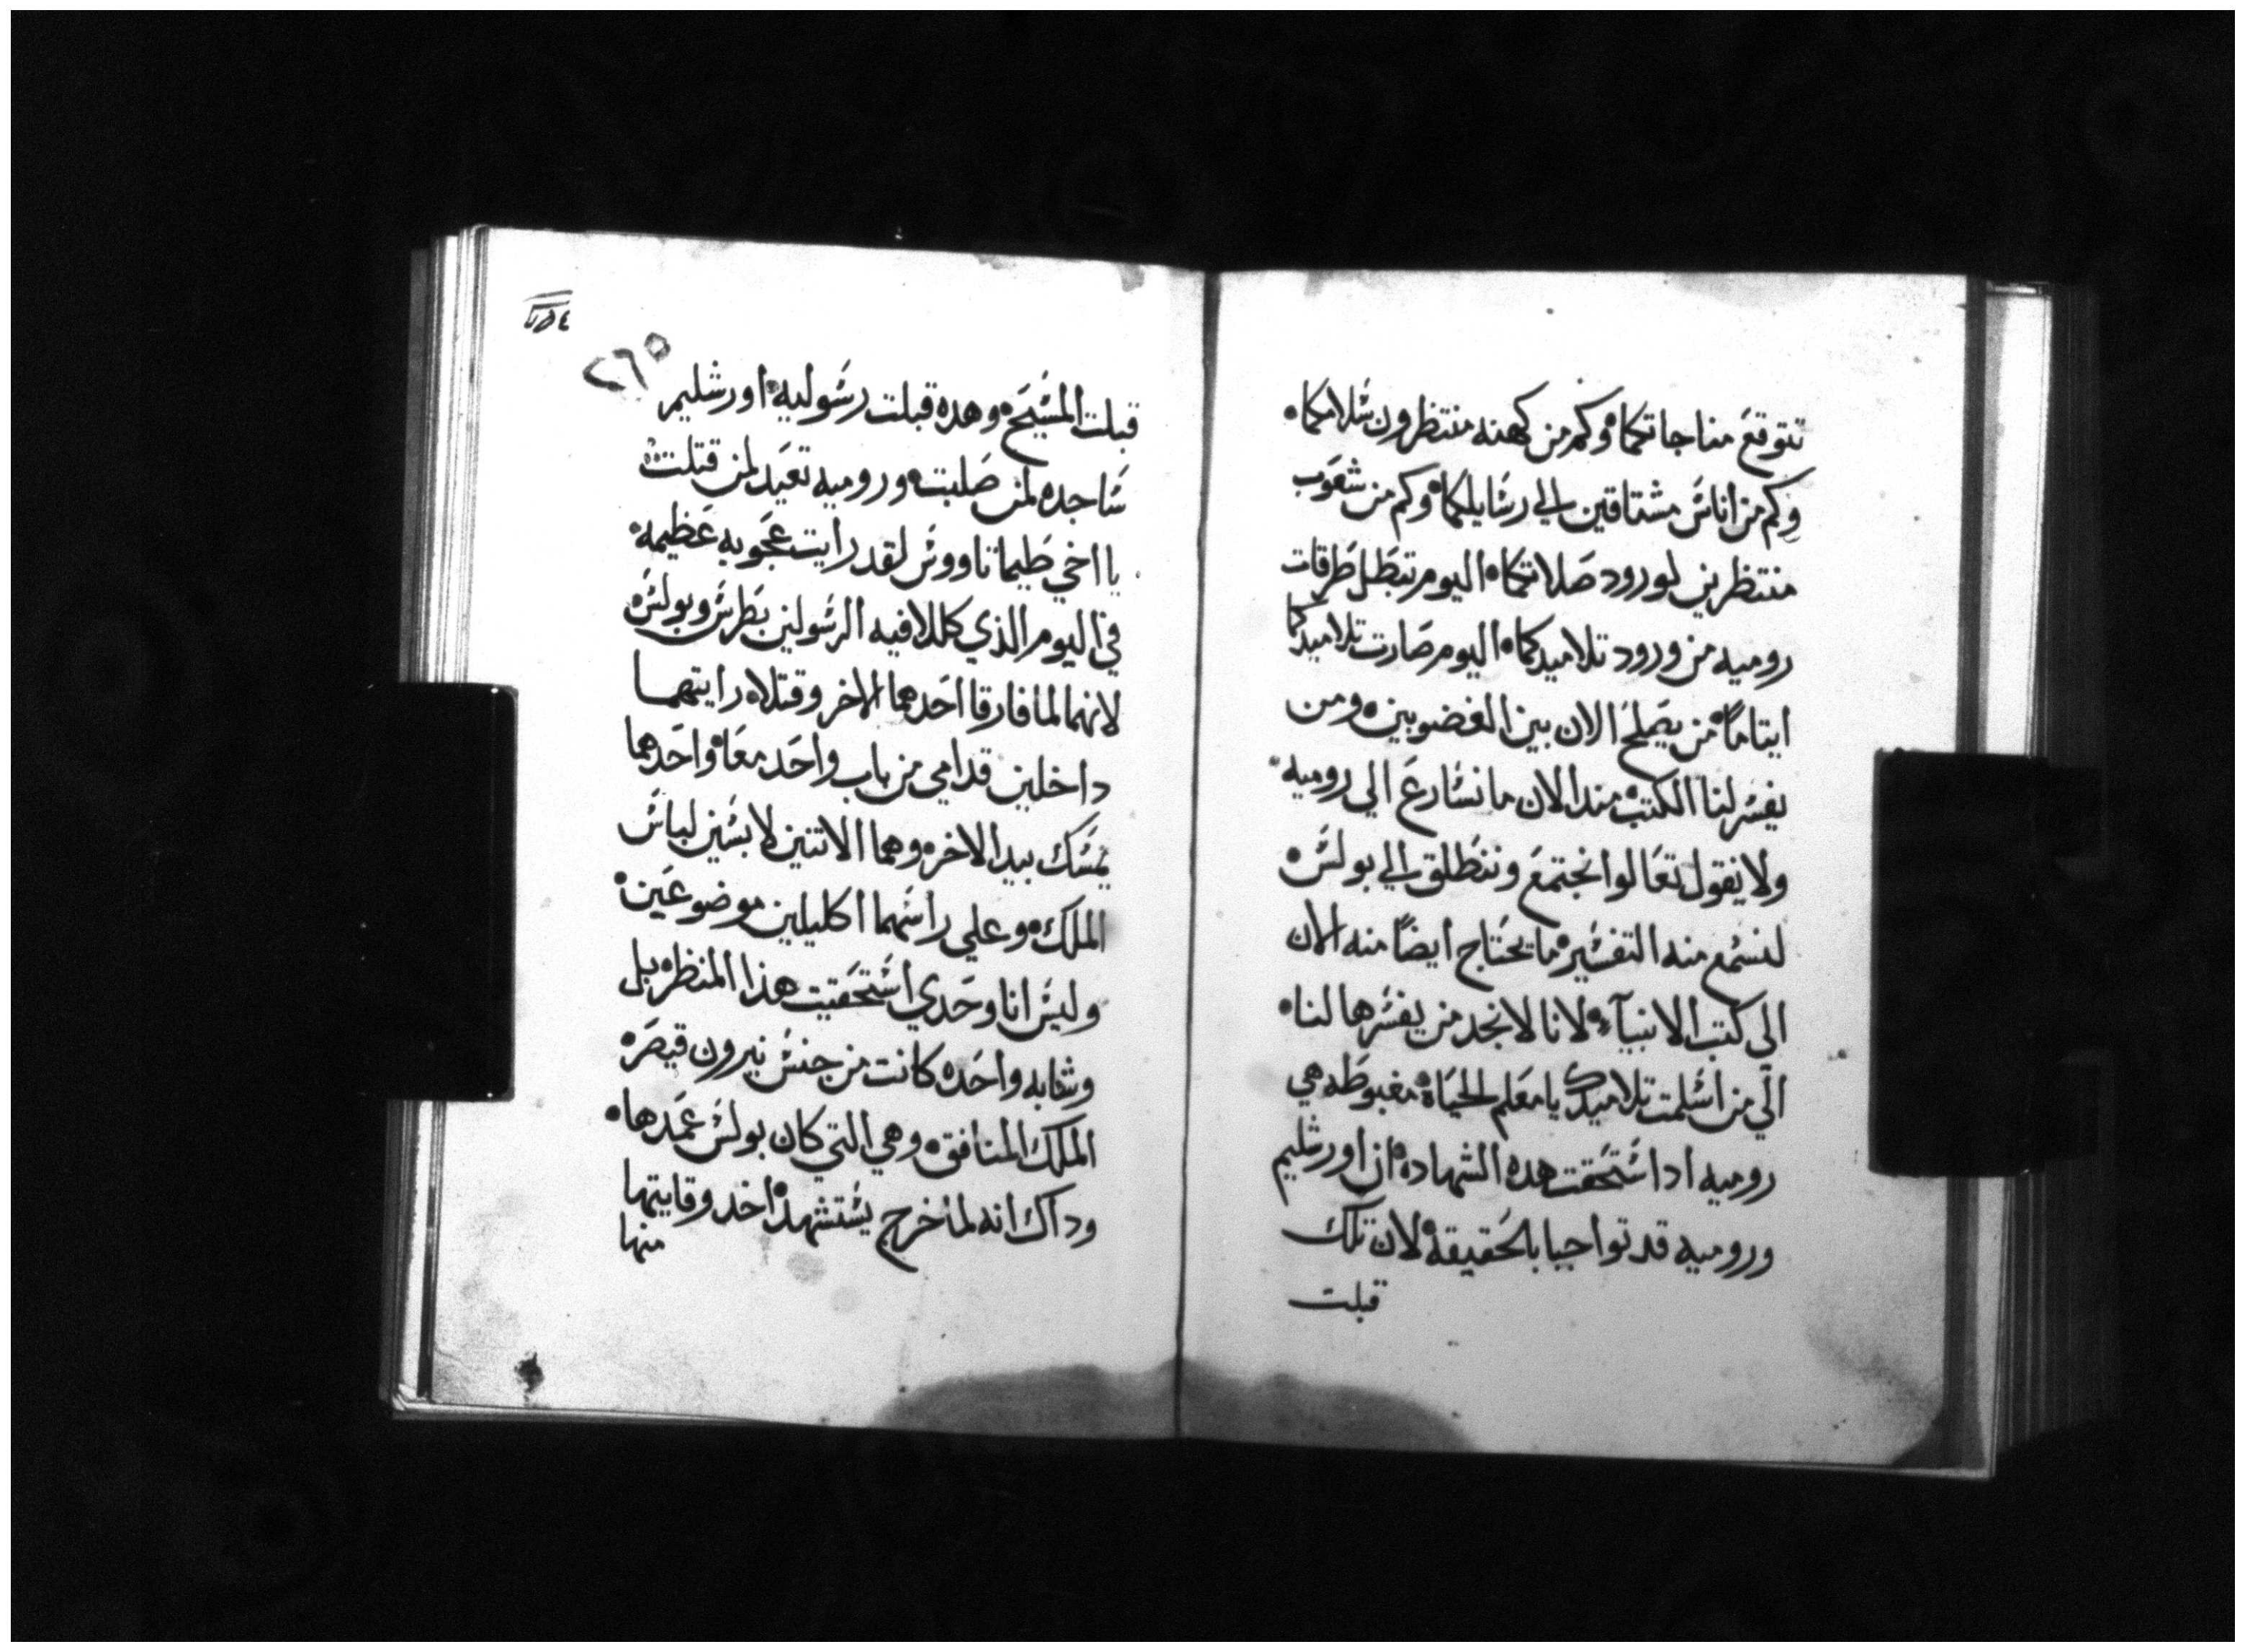 تتوقع مناجاتكما وكم من كهنه منتظرون شلامكما
وكم من اناش مشتاقين الي رشايلكما وكم من شعوب
منتظرين لورود صلاتكما اليوم تبطل طرقات
روميه من ورود تلاميدكما اليوم صارت تلاميدكما
ايتاماً من يصلح الان بين الغضوبين ومن
يفشر لنا الكتب مند الان ما نشارع الي روميه
ولا يقول تعالوا نجتمع وننطلق الي بولش
لنشمع منه التفشير ما يحتاج ايضاً منه الان
الي كتب الانبيآء لانا لا نجد من يفشرها لنا
الي من اشلمت تلاميدك يا معلم الحياة مغبوطه هي
روميه ادا اشتحقت هده الشهاده ان اورشليم
وروميه قد تواجبا بالحقيقه لان تلك
قبلت
٢٦٥
قبلت المشيح وهده قبلت رشوليه اورشليم
شاجده لمن صلبت وروميه تعيد لمن قتلت
يا اخي طيماتاووش لقد رايت عجوبه عظيمه
في اليوم الذي كللا فيه الرشولين بطرش وبولش
لانهما لما فارقا احدهما الاخر وقتلا رايتهما
داخلين قدامي من باب واحد معا واحدهما
يمشك بيد الاخر وهما الاتنين لابشين لباش
الملك وعلي راشهما اكليلين موضوعين
وليش انا وحدي اشتحقيت هذا المنظر بل
وشابه واحده كانت من جنش نيرون قيصر
الملك المنافق وهي التي كان بولش عمدها
وداك انه لما خرج يشتشهد اخد وقايتها
منها